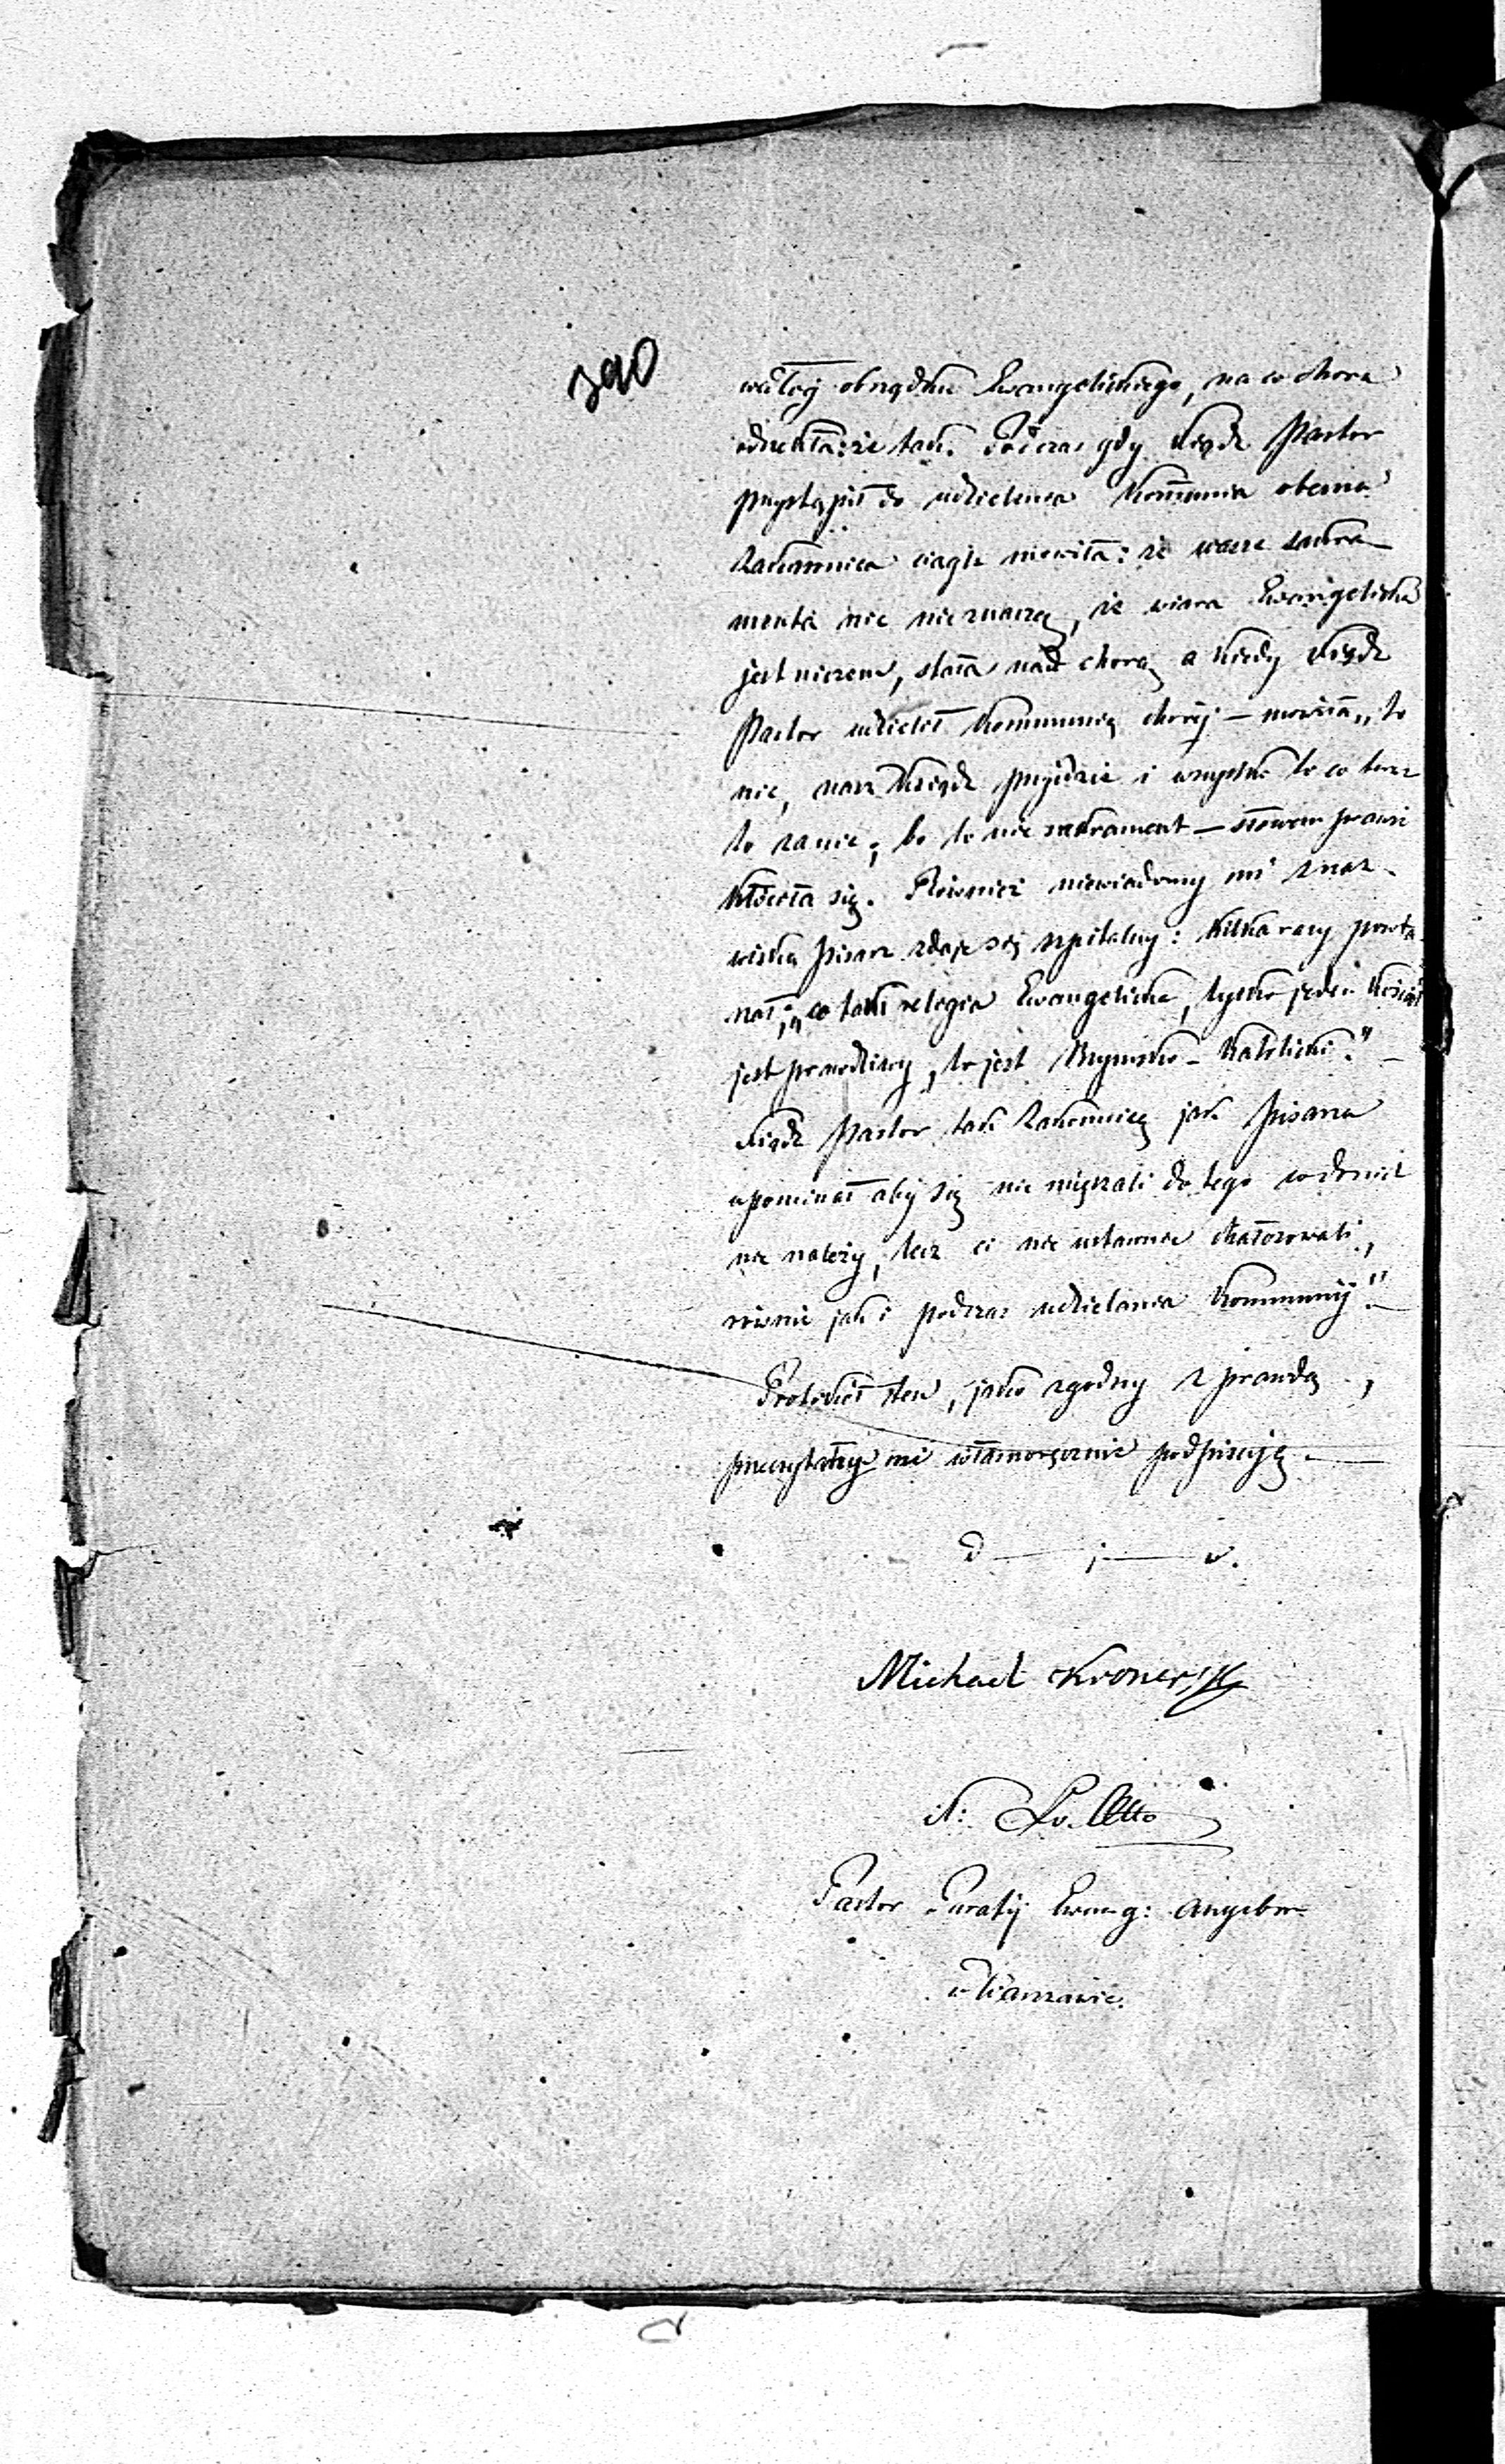 390
wałey obrządku Ewangelickiego, na co chora
odrzekła: że tak. Podczas gdy Ksiądz Pastor
przystąpił do udzielenia Kommunii obecna
Zakonnica ciągle mówiła: że wasze sakra-
menta nic nie znaczą, że wiara Ewangelicka
jest niczem, stała nad chorą a kiedy Ksiądz
Pastor udzielał Kommunią chorej – mówiła „to
nic, nasz Ksiądz przyjdzie i wszystko to co teraz
to za nic, bo to nie sakrament – słowem prawie
kłóciła się. Również niewiadomy mi z naz-
wiska pisarz zdaje się szpitalny: kilka razy powta-
rzał; „co tam religia Ewangelicka, tylko jeden Kościół
jest prawdziwy, to jest Rzymsko-Katolicki." –
Ksiądz Pastor tak Zakonnicę jak pisarza
upominał aby się nie mięszali do tego co do nich
nie należy, lecz ci nieustannie hałasowali,
równie jak i podczas udzielania Kommunij." –
Protokół ten, jako zgodny z prawdą,
przeczytany mi własnoręcznie podpisuję. –
d — j — w.
Michael
L. Otto
Pastor Parafij Ewang: Augsbur
w Warszawie.